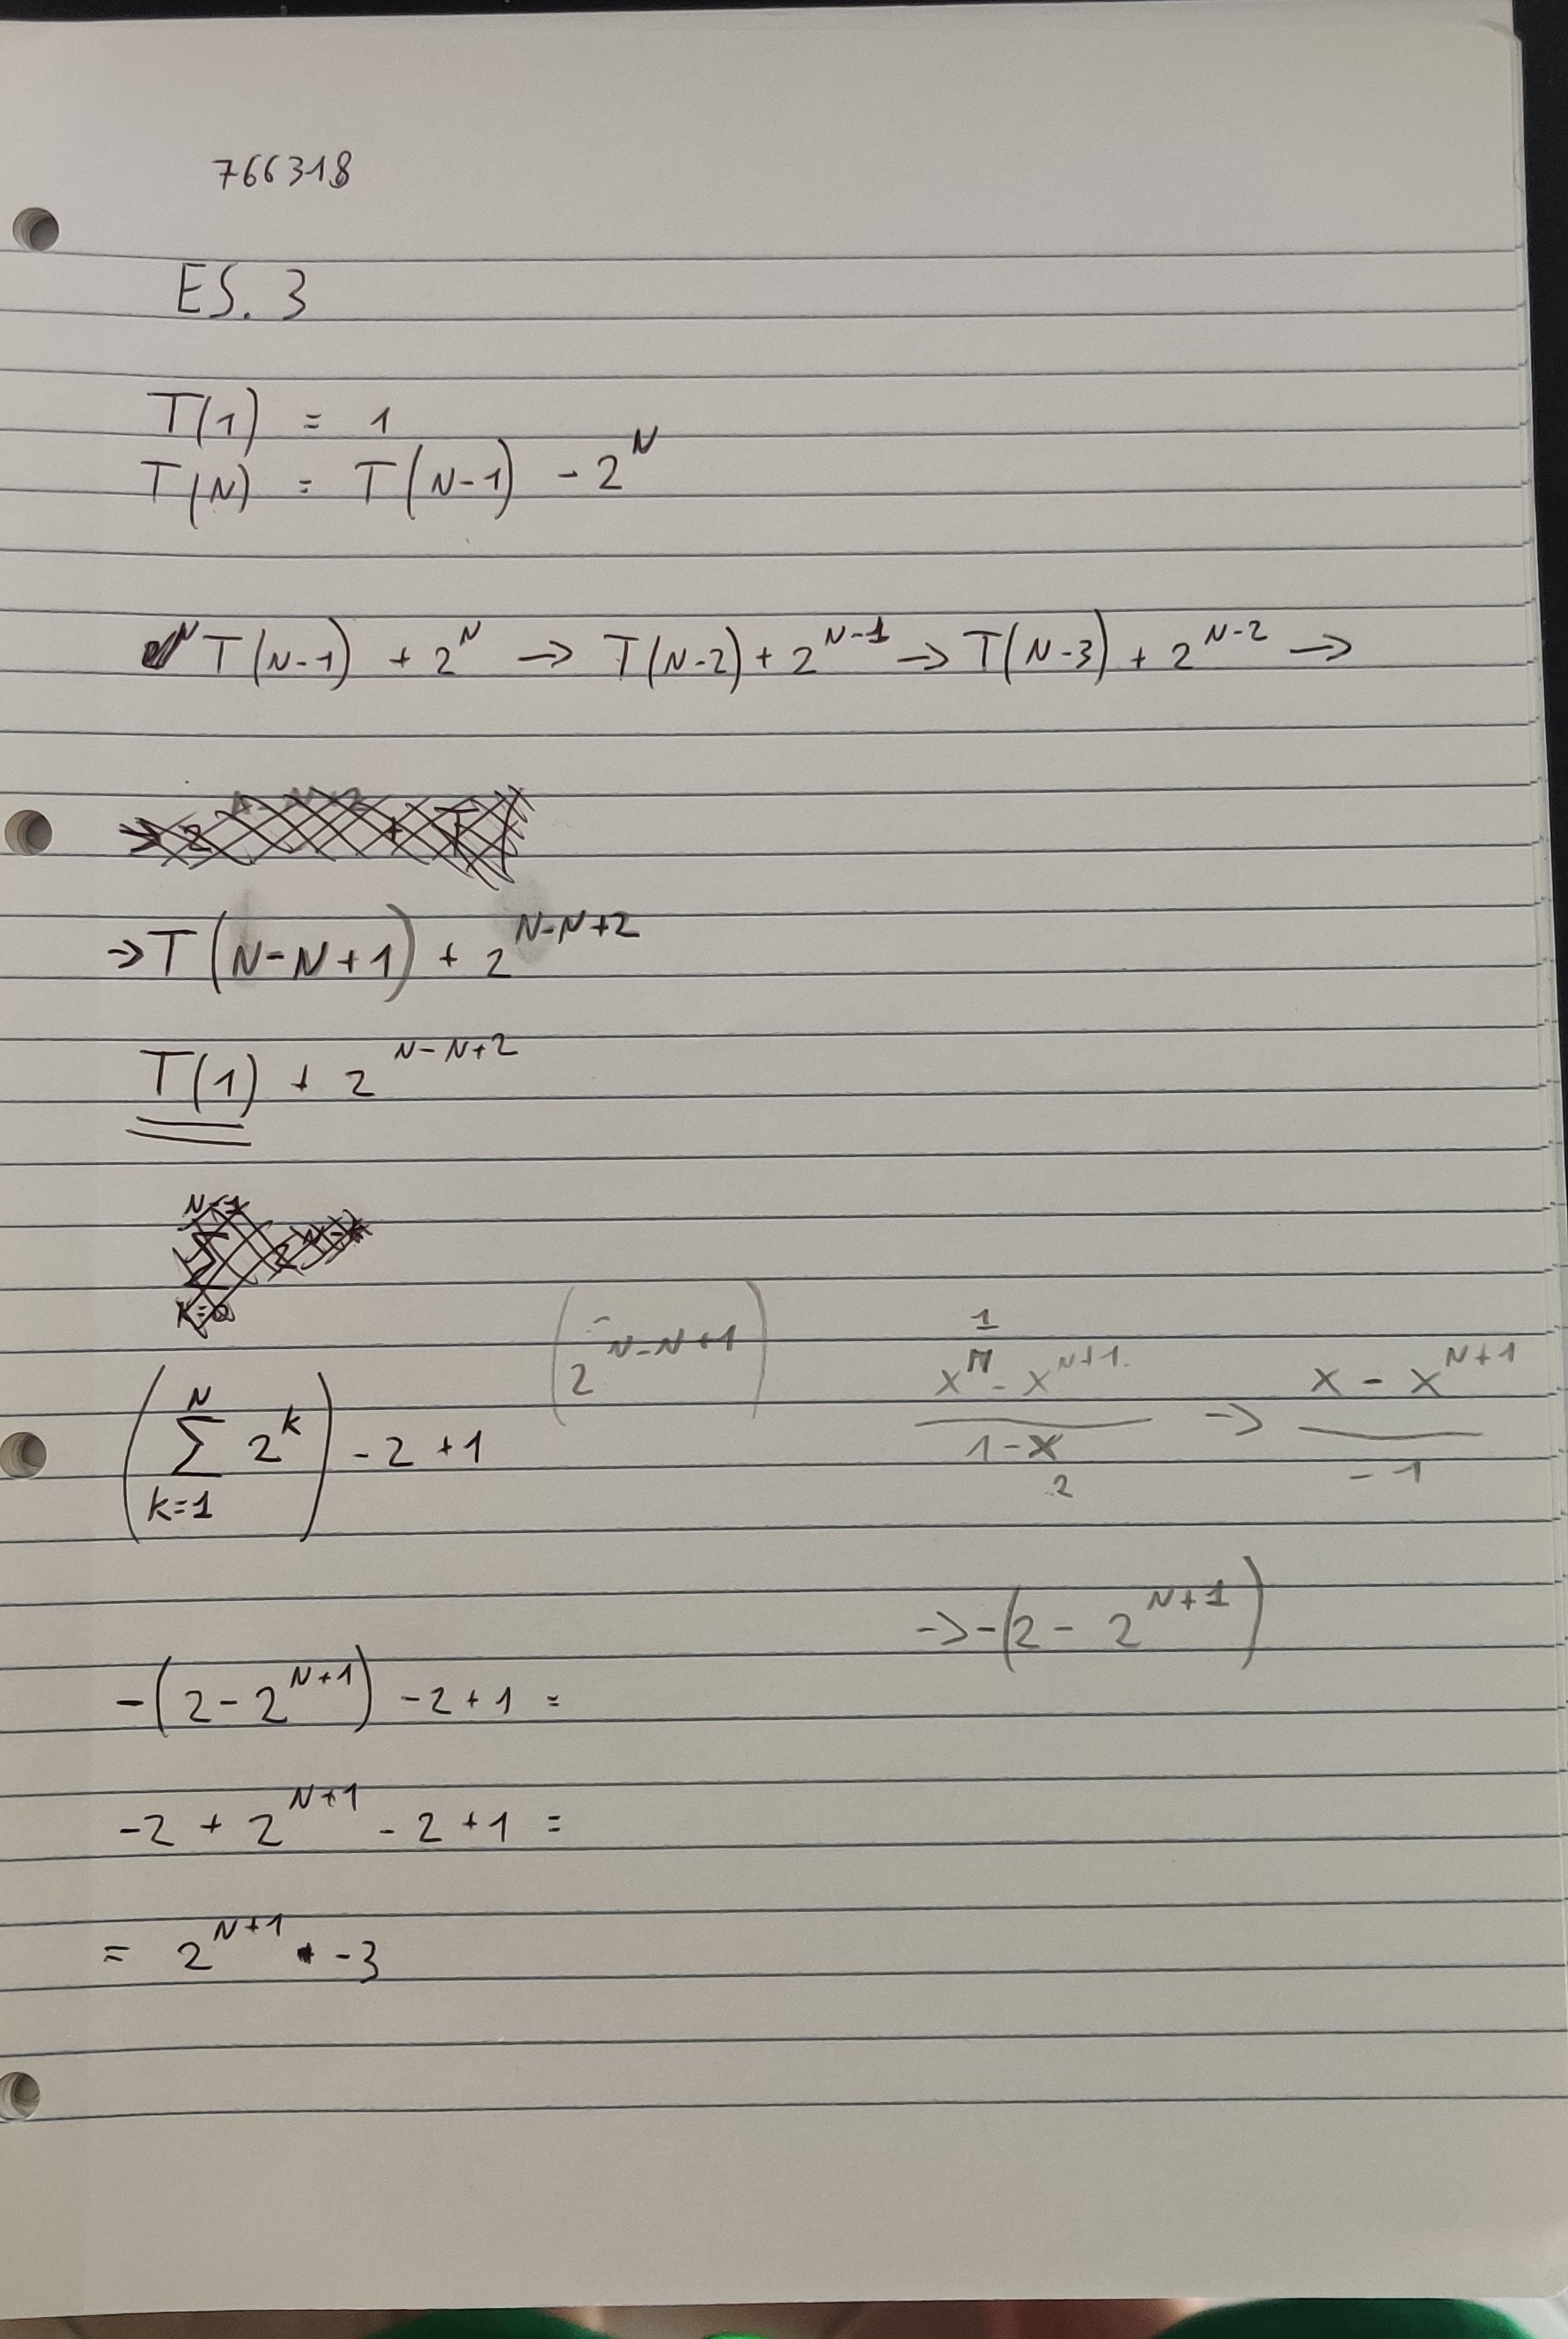 766318
ES. 3
T(1) = 1
T(N) = T(N-1) - 2^N
T(N-1) + 2^N → T(N-2) + 2^{N-1} → T(N-3) + 2^{N-2} →
→ T(N-N+1) + 2^{N-N+2}
T(1) + 2^{N-N+2}
(2^{N-N+1})
(∑_{k=1}^{N} 2^k) - 2 + 1
x^1 - x^{N+1} / 1 - x → x - x^{N+1} / -1
2
→ -(2 - 2^{N+1})
-(2 - 2^{N+1}) - 2 + 1 =
-2 + 2^{N+1} - 2 + 1 =
= 2^{N+1} - 3